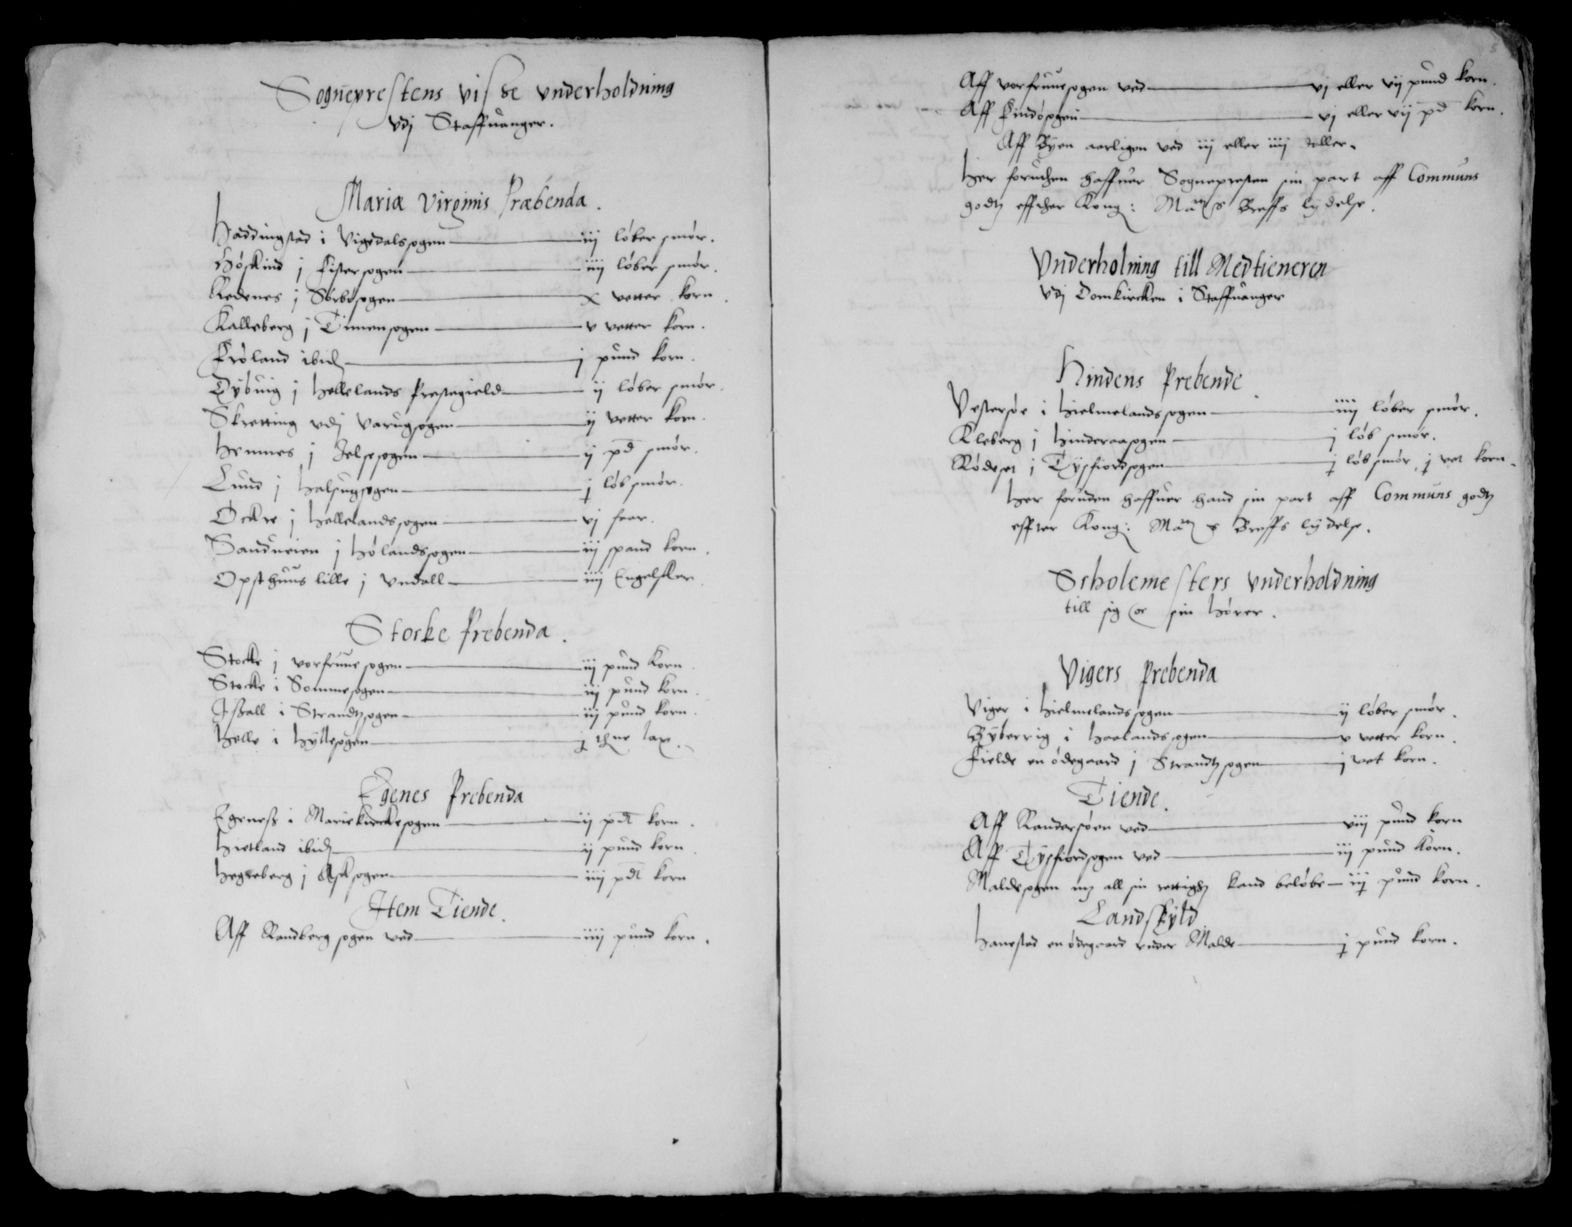 Sogneprestens visse vnderholdning
vdj Staffuanger.
Mariæ Virginis Præbenda.
Haddingstad i Vigedalsogen iij løber smør.
Høskind j Fistersogen iiij løber smør.
Redenes j Sørbøsogen x vetter korn.
Kalleberg j Timensogen v vetter korn.
Frøland ibid j pund korn.
Tybuig j Hellelands Prestegield ij løber smør.
Skretting vdj Varugsogen ij vetter korn.
Hemnes j Jelsesogen ij pd smør.
Lund j Halsnøgsogen j løb smør.
Ockre j Hellelandsogen vj faar.
Sandueien j Hølandsogen iij spand korn.
Opsthuus lille j Vndall iiij Engelsker
Stocke Prebenda.
Stocke j vorfrue sogen iij pund korn
Stocke i Sommesogen iij pund korn.
Jssall i Strandsogen iij pund korn.
Helle i Hyllesogen j thne lax.
Egenes Prebenda
Egeness i Mariekirckesogen ij pd korn.
Hietland ibid ij pund korn.
Heggeberg j Asksogen iiij pd korn
Item Tiende.
Aff Randberg sogen ved iiij pund korn.
Aff vorfruesogen ved vj eller vij pund korn.
Aff Findøsogen vj eller vij pd korn.
Aff Byen aarligen ved iij eller iiij daller.
Her foruden haffuer Sognepresten sin part aff Communs
godtz effther Kong: Matts Breffs lydelse.
Vnderholning till Medtieneren
vdj Domkircken i Staffuanger
Hindens Prebende.
Vestersøe i Hielmelandsogen iiij løber smør.
Kleberg j Hinderaasogen j løb smør.
Rødeset j Tysfiordsogen j løb smør, j vet korn.
Her foruden haffuer hand sin part aff Communs godtz
effter Kong: Matts Breffs lydelse.
Scholemesters vnderholdning
till sig oc sin Hører.
Vigers Prebenda
Viger i Hielmelandsogen ij løber smør.
Byberrig i Haalandsogen v vetter korn.
Fielde en ødegaard j Strandsogen j vet korn.
Tiende.
Aff Randersøen ved viij pund korn
Aff Tysfiordsogen ved iij pund korn.
Maldesogen mz all sin rettighz kand beløbe iij pund korn.
Landskyld
Hanested en ødegaard vnder Malde j pund korn.